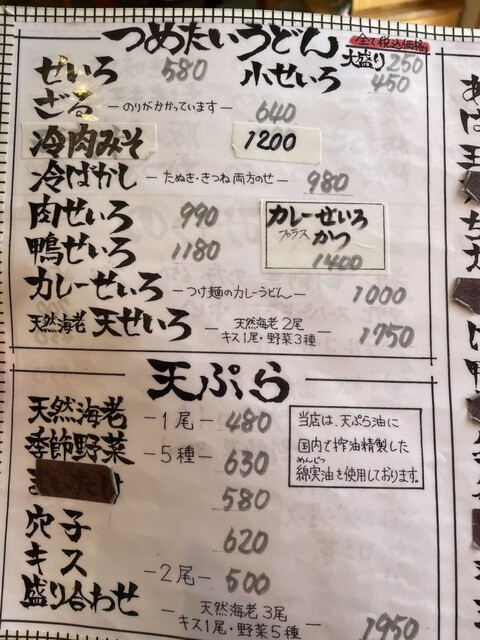 つめたいうどん
全て税込価格
大盛り250
せいろ 580 小せいろ 450
ざる ―のりがかかっています― 640
冷肉みそ 1200
冷ばかし ―たぬき・きつね両方のせ― 980
肉せいろ 990
カレーせいろ
プラス かつ
1400
鴨せいろ 1180
カレーせいろ ―つけ麺のカレーうどん― 1000
天然海老 天せいろ ― 天然海老2尾
キス1尾・野菜3種 ― 1750
天ぷら
天然海老 ―1尾― 480
季節野菜 ―5種― 630
580
穴子 620
キス ―2尾― 500
盛り合わせ ― 天然海老3尾
キス1尾・野菜5種 ― 1950
当店は、天ぷら油に
国内で搾油精製した
めんじつ
綿実油を使用しております。